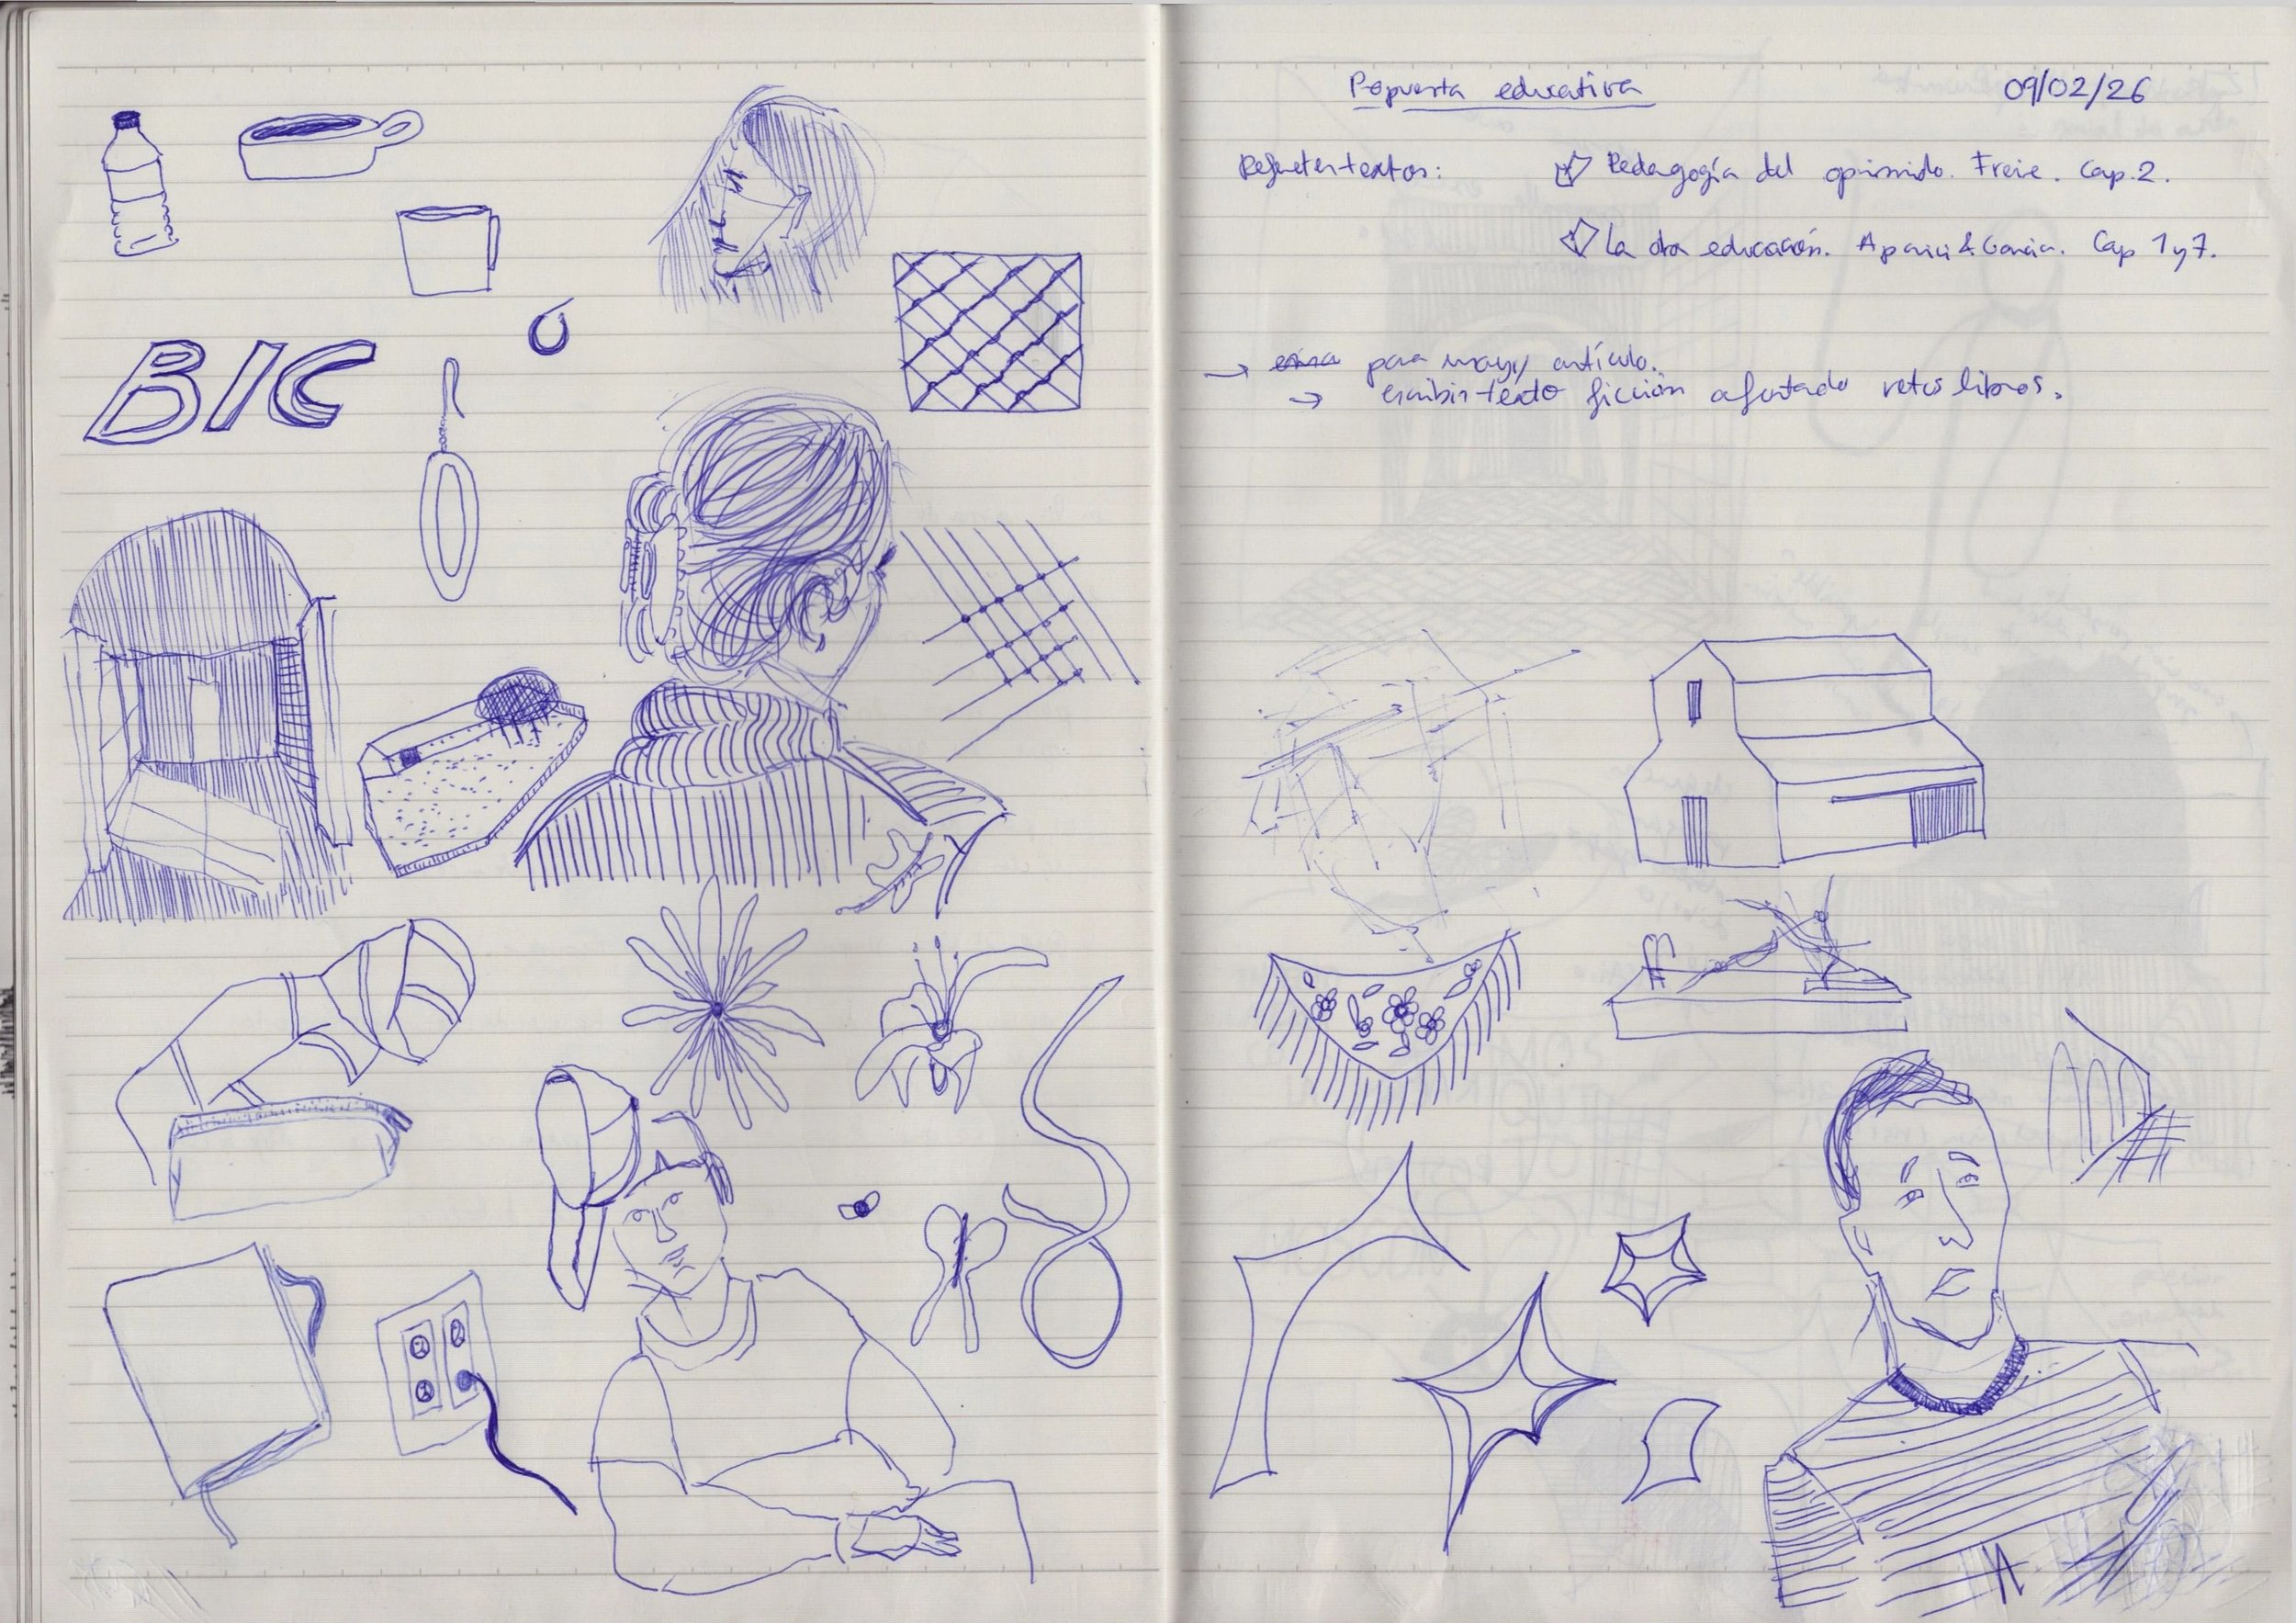 BIC
Popuesta educativa 09/02/26
textos: Pedagogía del opimido. Freie. Cap. 2.
La otra educación. Aparici & García. Cap 1 y 7.
→ para mayo, artículo.
→ escribir texto ficción afortado retos libros.